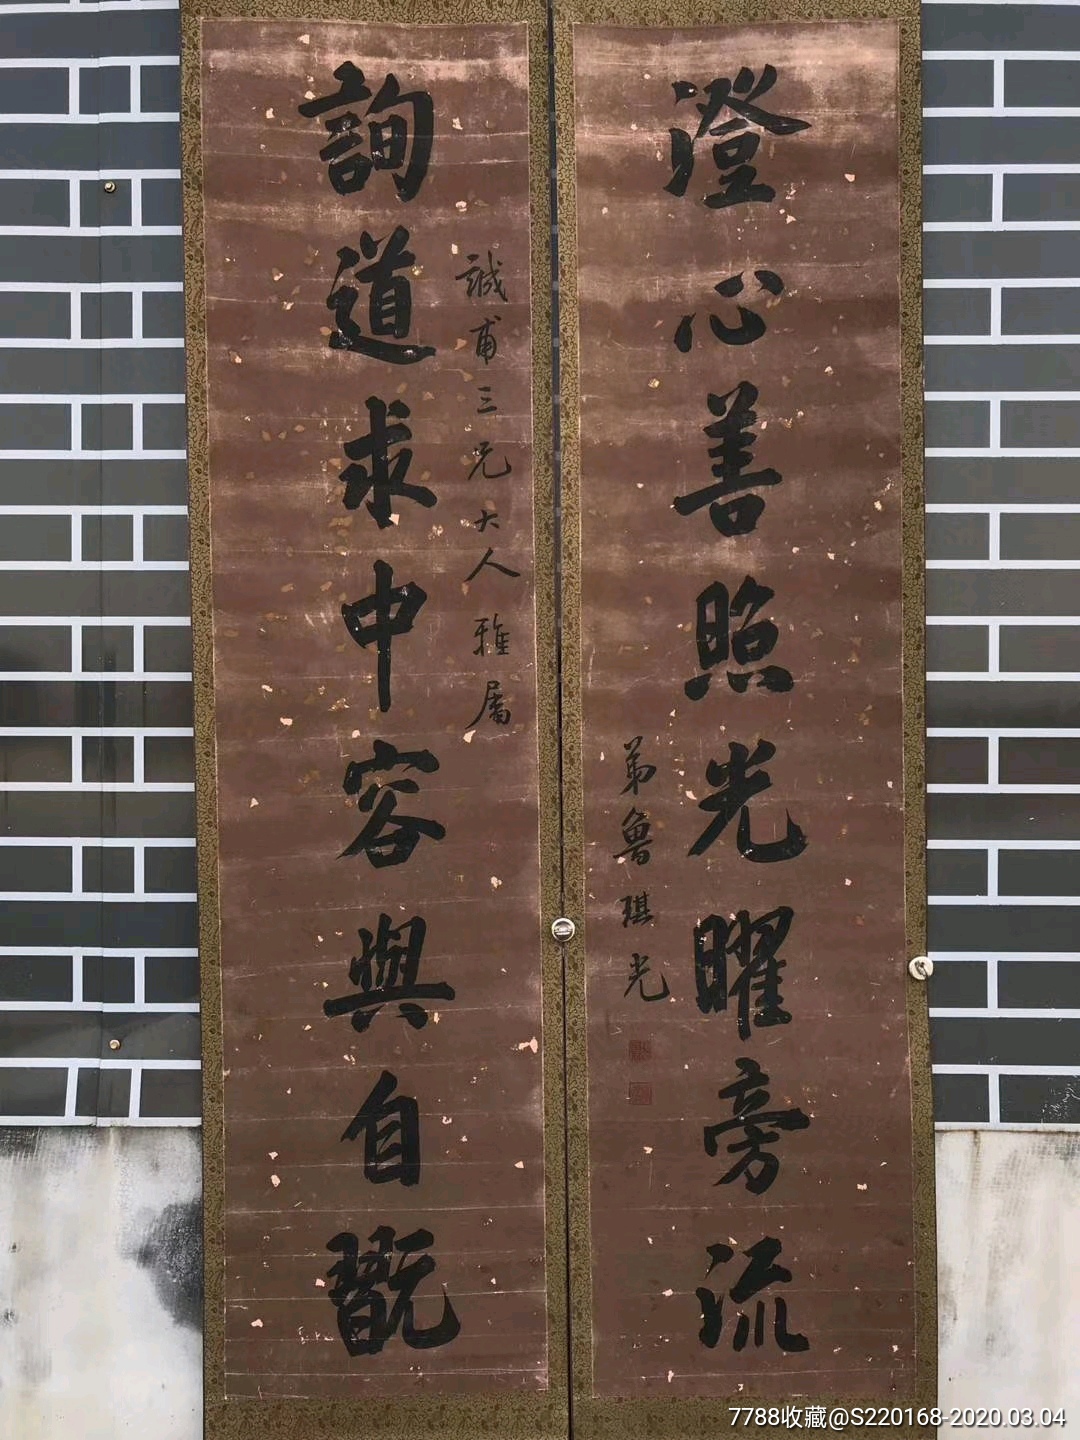 澄心善照光曜旁流
弟魯琪光
誠甫三兄大人雅屬
詢道求中容與自翫
7788收藏@S220168-2020.03.04